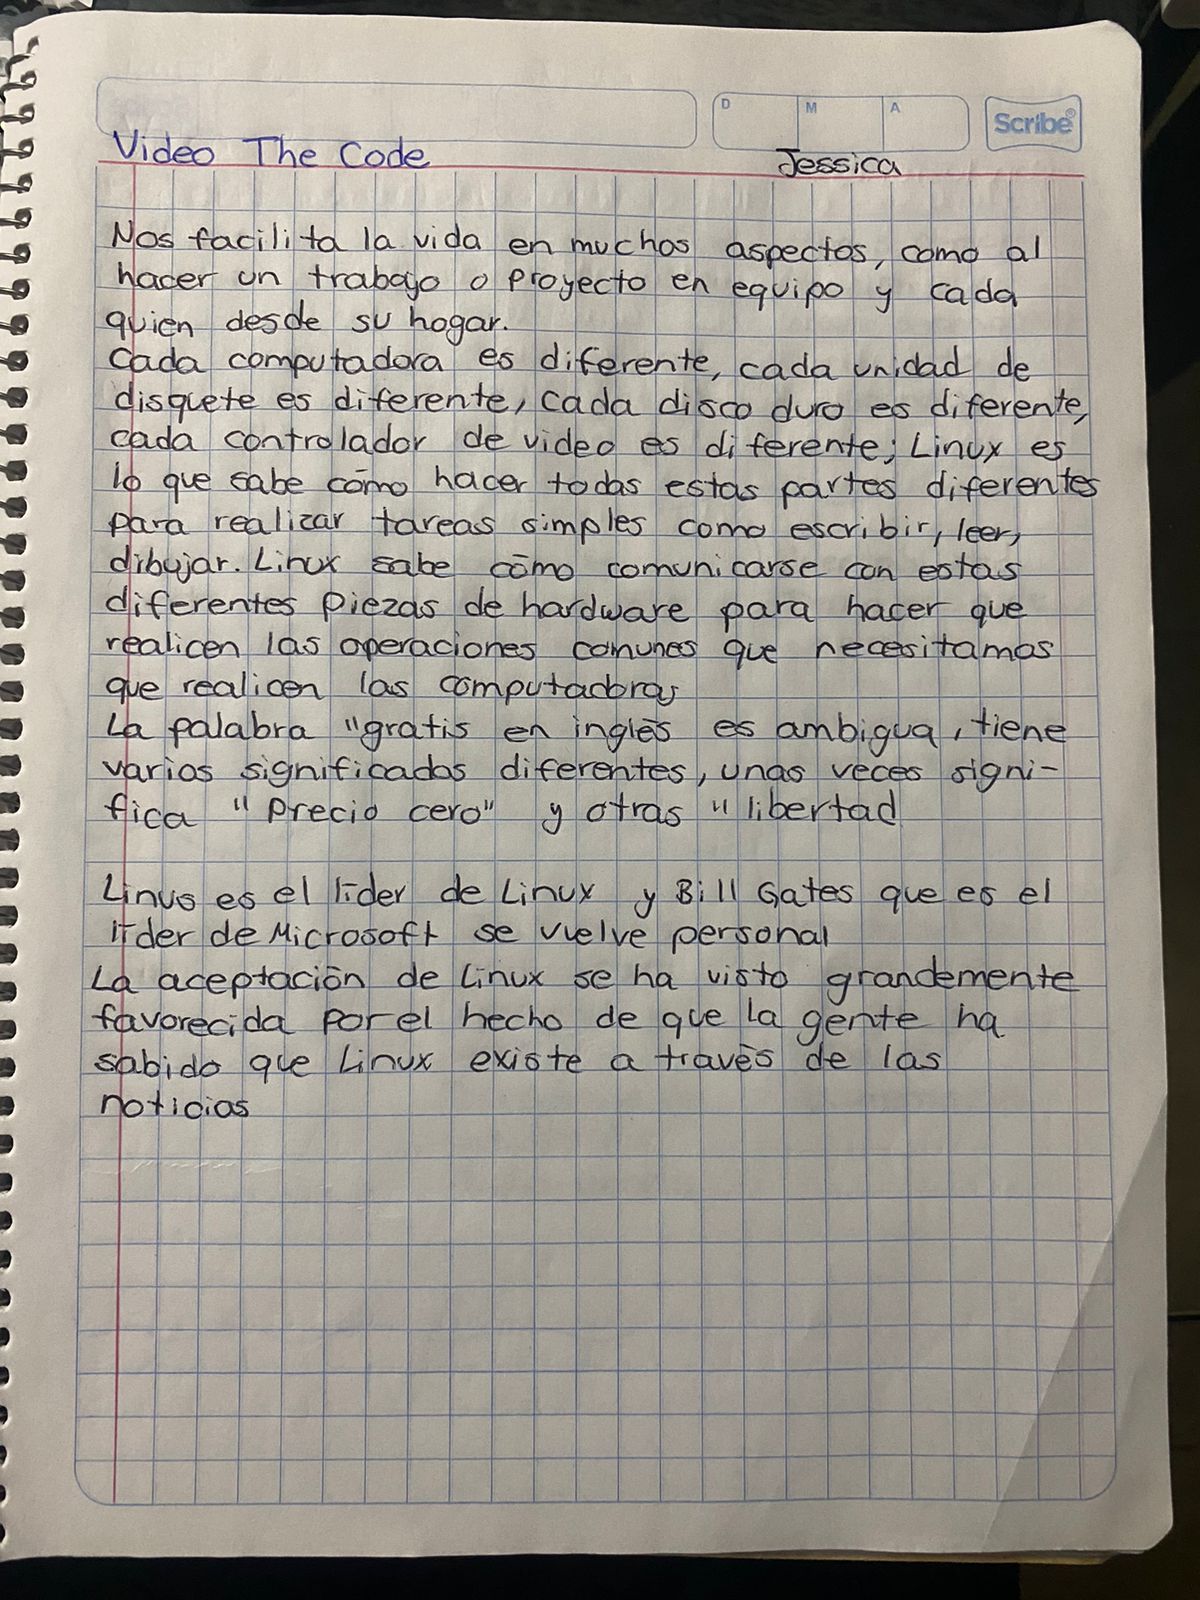 D M A Scribe®
Video The Code Jessica
Nos facilita la vida en muchos aspectos, como al
hacer un trabajo o proyecto en equipo y cada
quien desde su hogar.
Cada computadora es diferente, cada unidad de
disquete es diferente, cada disco duro es diferente,
cada controlador de video es diferente; Linux es
lo que sabe cómo hacer todas estas partes diferentes
para realizar tareas simples como escribir, leer,
dibujar. Linux sabe cómo comunicarse con estas
diferentes piezas de hardware para hacer que
realicen las operaciones comunes que necesitamos
que realicen las computadoras
La palabra "gratis en inglés es ambigua, tiene
varios significados diferentes, unas veces signi-
fica "Precio cero" y otras "libertad
Linus es el líder de Linux y Bill Gates que es el
líder de Microsoft se vuelve personal
La aceptación de Linux se ha visto grandemente
favorecida por el hecho de que la gente ha
sabido que Linux existe a través de las
noticias